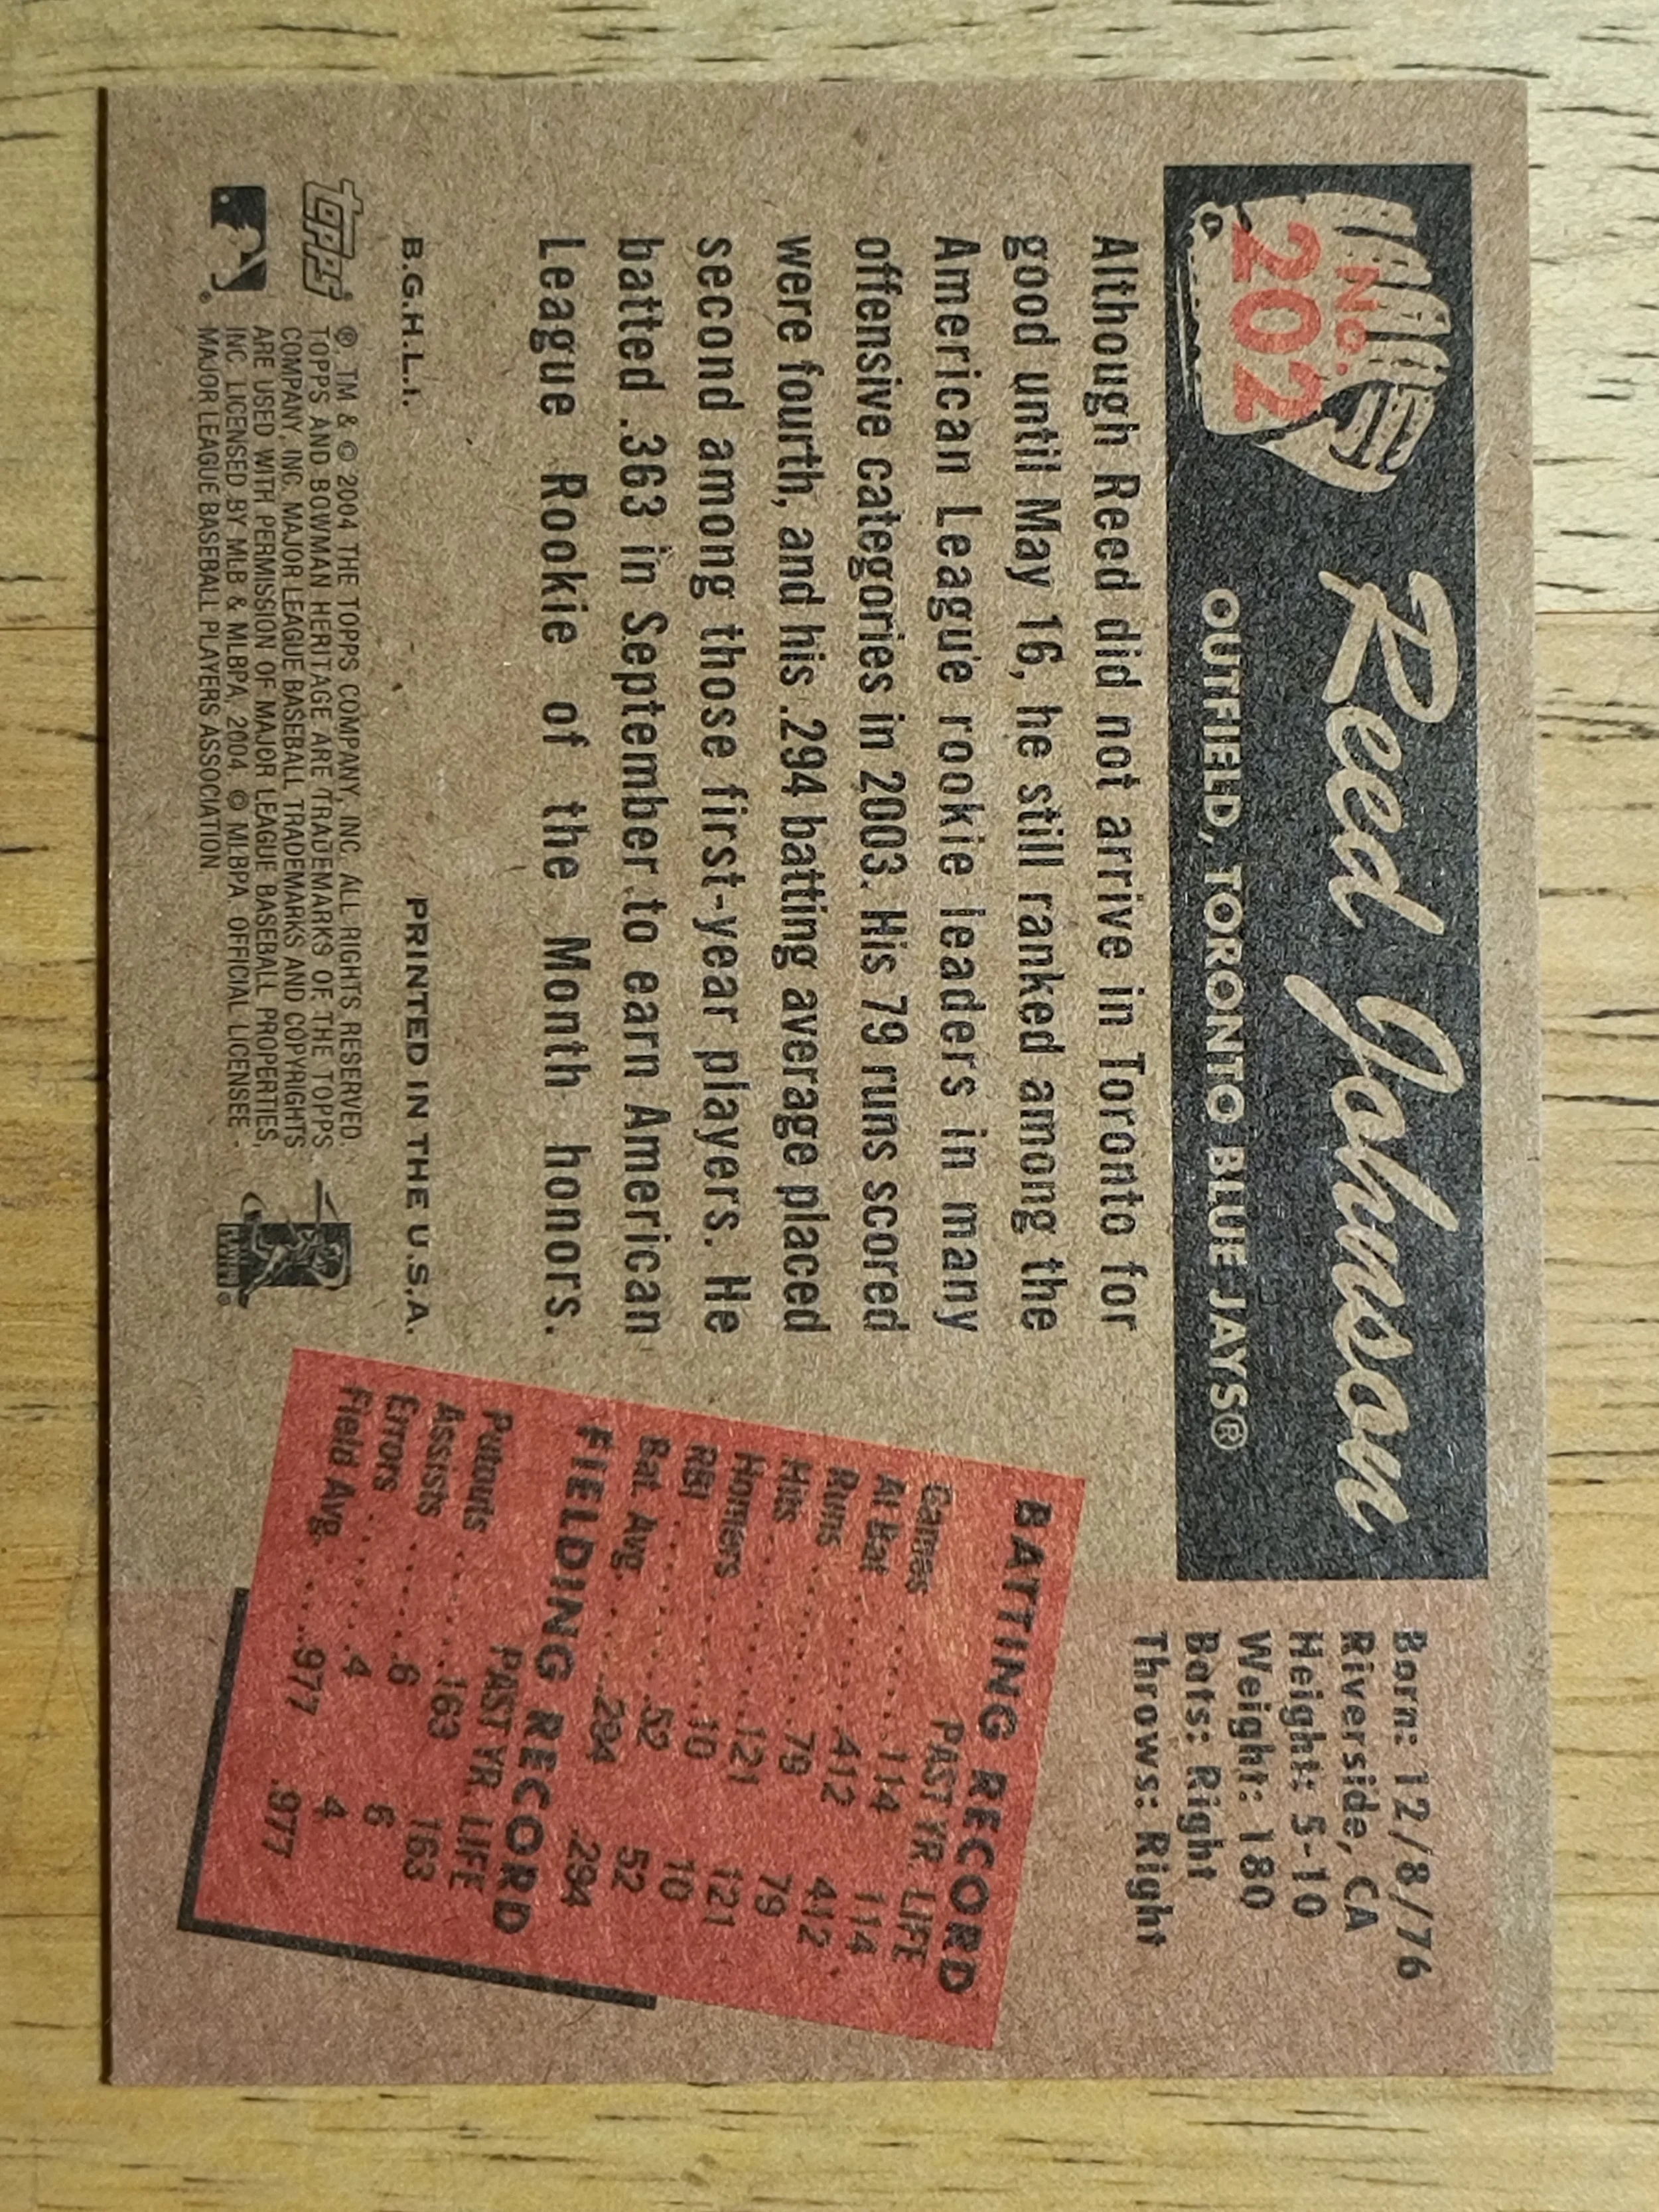 No.
202
Reed Johnson
OUTFIELD, TORONTO BLUE JAYS®
Born: 12/8/76
Riverside, CA
Height: 5-10
Weight: 180
Bats: Right
Throws: Right
Although Reed did not arrive in Toronto for
good until May 16, he still ranked among the
American League rookie leaders in many
offensive categories in 2003. His 79 runs scored
were fourth, and his .294 batting average placed
second among those first-year players. He
batted .363 in September to earn American
League Rookie of the Month honors.
BATTING RECORD
PAST YR. LIFE
Games ......114 114
At Bat ......412 412
Runs ......79 79
Hits ......121 121
Homers ......10 10
RBI ......52 52
Bat. Avg. .....294 .294
FIELDING RECORD
PAST YR. LIFE
Putouts ......163 163
Assists ......6 6
Errors ......4 4
Field Avg. .....977 .977
B.G.H.L.I. PRINTED IN THE U.S.A.
topps®
®, TM & © 2004 THE TOPPS COMPANY, INC. ALL RIGHTS RESERVED.
TOPPS AND BOWMAN HERITAGE ARE TRADEMARKS OF THE TOPPS
COMPANY, INC. MAJOR LEAGUE BASEBALL TRADEMARKS AND COPYRIGHTS
ARE USED WITH PERMISSION OF MAJOR LEAGUE BASEBALL PROPERTIES,
INC. LICENSED BY MLB & MLBPA, 2004. © MLBPA OFFICIAL LICENSEE -
MAJOR LEAGUE BASEBALL PLAYERS ASSOCIATION